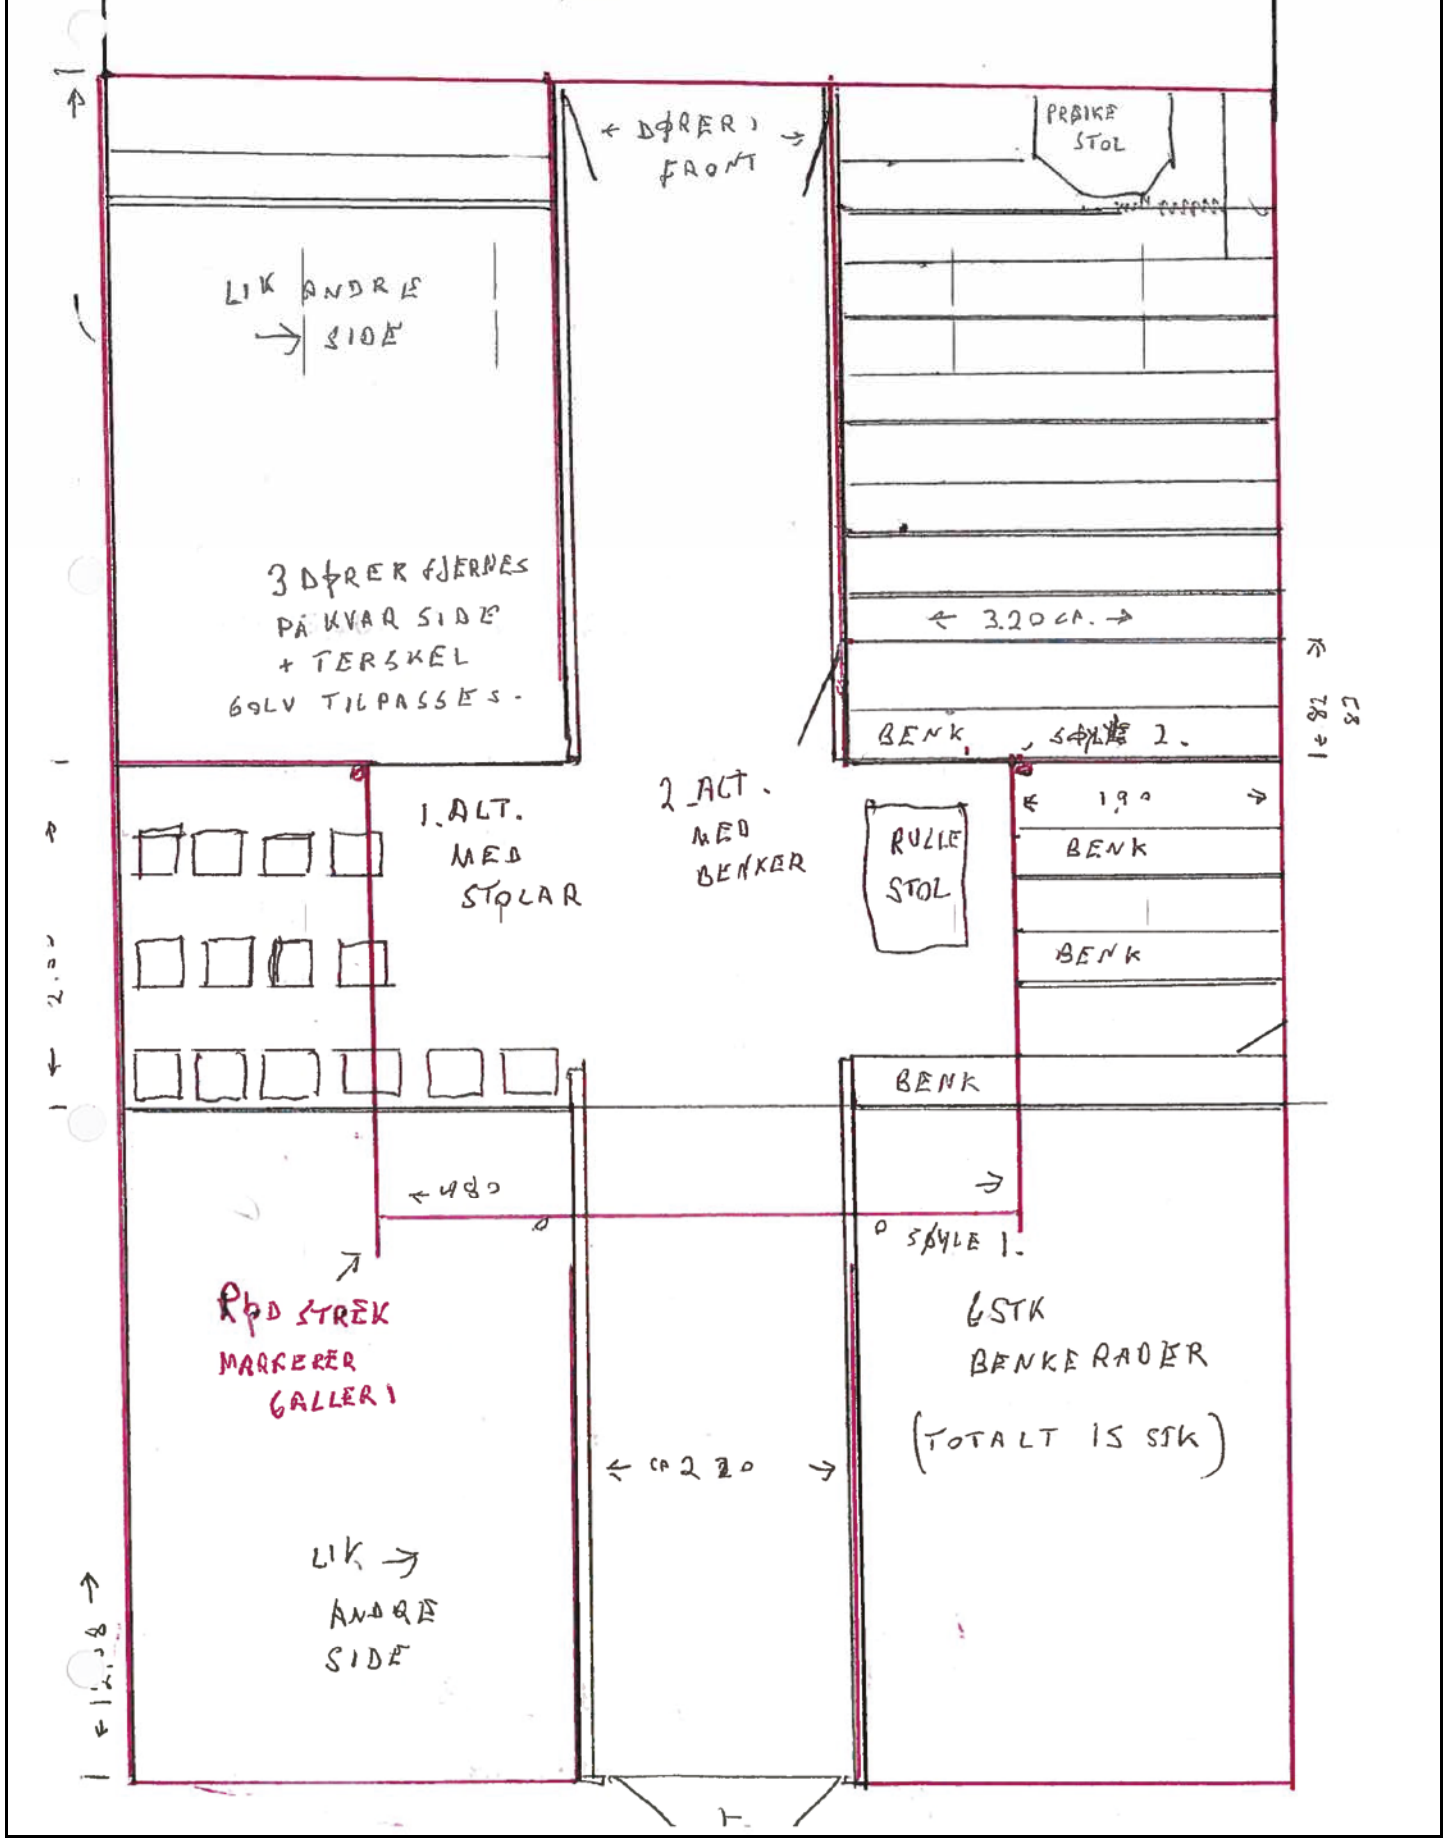 ← DØRER I →
FRONT
PREIKE
STOL
LIK ANDRE
→ SIDE
3 DØRER FJERNES
PÅ KVAR SIDE
+ TERSKEL
GOLV TILPASSES.
← 3.20 CA. →
BENK
SØYLE 2.
1. ALT.
MED
STOLAR
2. ALT.
MED
BENKER
RULLE
STOL
← 190 →
BENK
BENK
BENK
← 480 →
SØYLE 1.
RØD STREK
MARKERER
GALLERI
6 STK
BENKERADER
(TOTALT 15 STK)
← CA 220 →
LIK →
ANDRE
SIDE